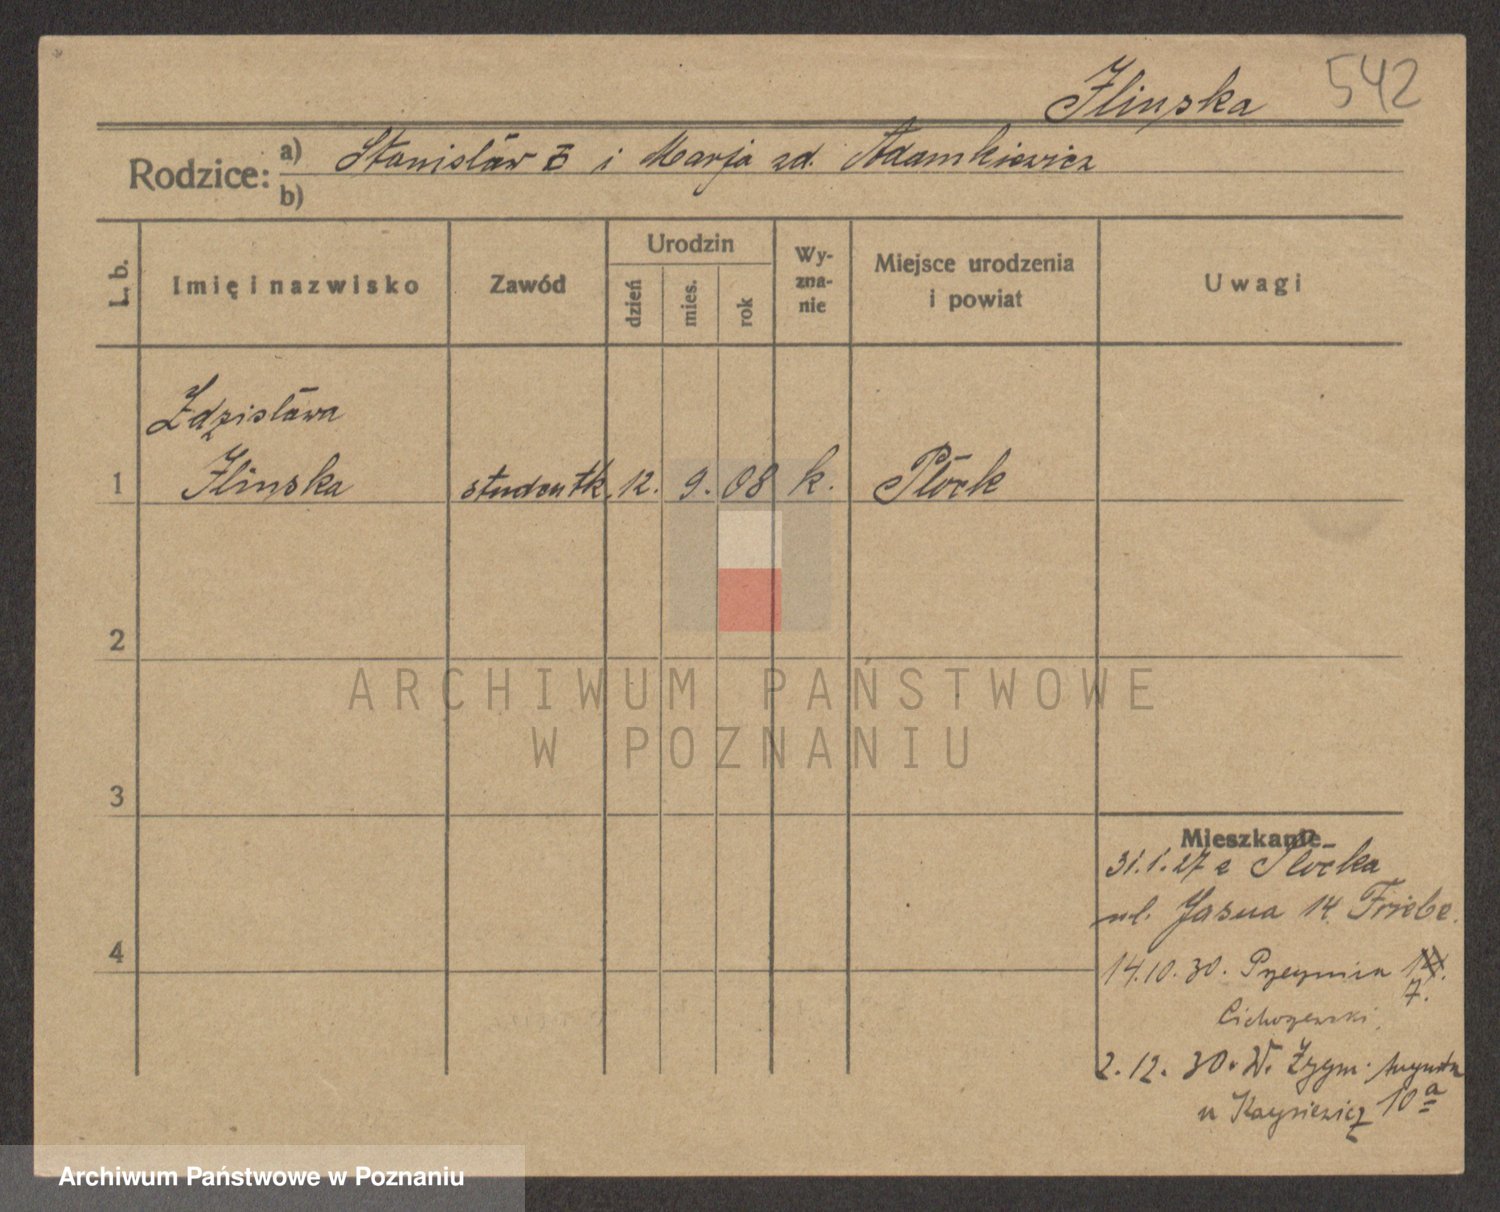 Ilinska 542
Rodzice: a) Stanisław i Marja zd. Adamkiewicz
b)
L. b. Imię i nazwisko Zawód Urodzin dzień mies. rok Wyznanie Miejsce urodzenia i powiat Uwagi
Zdzisława
1 Ilinska studentk. 12. 9. 08 k. Płock
2
3
4
Mieszkanie
31.1.27 z Płocka
ul. Jasna 14 Friebe.
14.10.30. 14.
7.
2.12.30. W. Zygm. Augusta
u 10a
ARCHIWUM PAŃSTWOWE
W POZNANIU
Archiwum Państwowe w Poznaniu